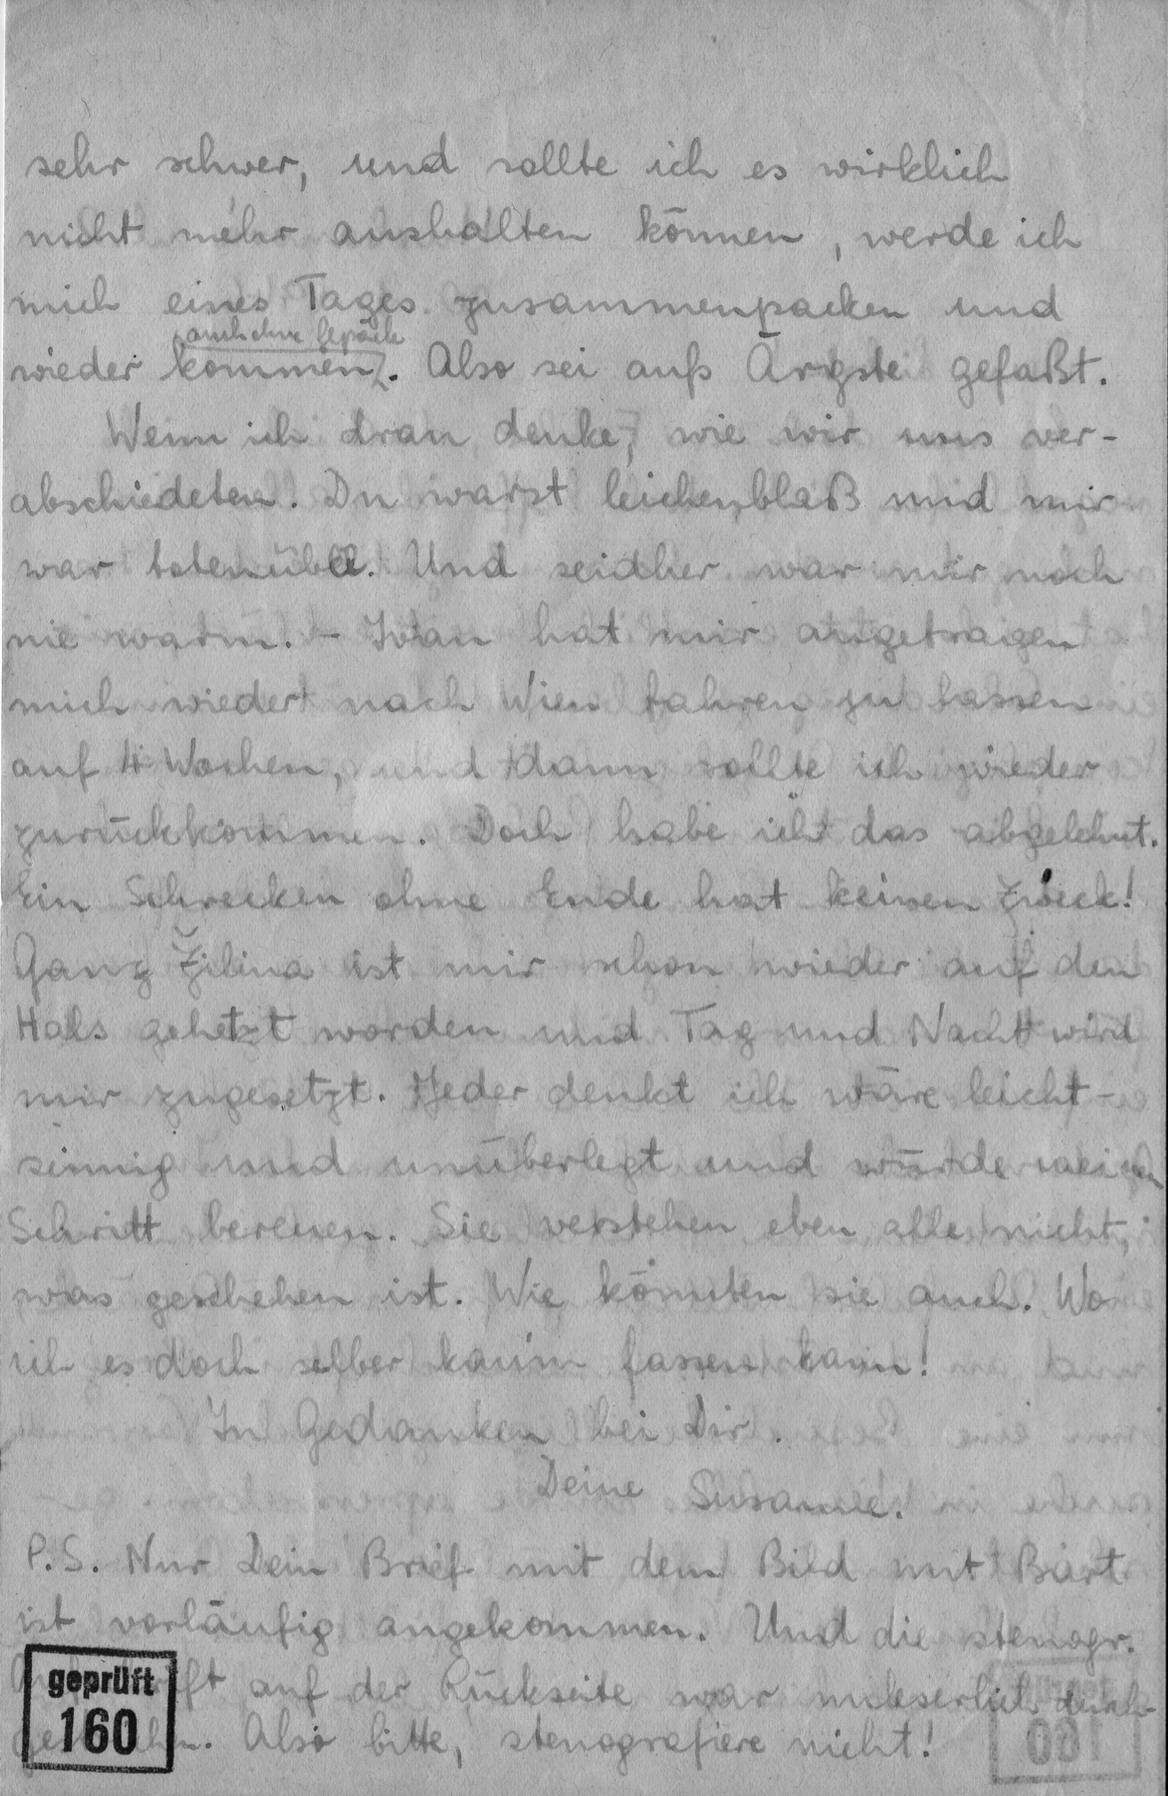 sehr schwer, und sollte ich es wirklich
nicht mehr aushalten können, werde ich
mich eines Tages zusammenpacken und
auch ohne Gepäck
wieder kommen. Also sei aufs Ärgste gefaßt.
Wenn ich dran denke, wie wir uns ver-
abschiedeten. Du warst leichenblaß und mir
war totenübel. Und seidher war mir noch
nie warm. - Ivan hat mir angetragen
mich wieder nach Wien fahren zu lassen
auf 4 Wochen, und dann sollte ich wieder
zurückkommen. Doch habe ich das abgelehnt.
Ein Schrecken ohne Ende hat keinen Zweck!
Ganz Žilina ist mir schon wieder auf den
Hals gehetzt worden und Tag und Nacht wird
mir zugesetzt. Jeder denkt ich wäre leicht-
sinnig und unüberlegt und würde meinen
Schritt bereuen. Sie verstehen eben alle nicht,
was geschehen ist. Wie könnten sie auch. Wo
ich es doch selber kaum fassen kann!
In Gedanken bei Dir.
Deine Susanne.
P.S. Nur Dein Brief mit dem Bild mit Bart
ist vorläufig angekommen. Und die stenogr.
auf der Rückseite war unleserlich durch-
Also bitte, stenografiere nicht!
geprüft
160